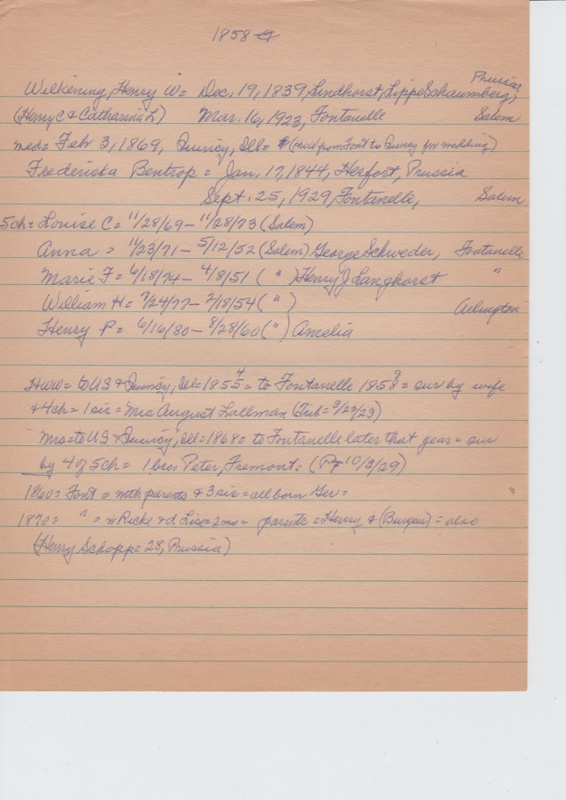 1858 G
Wilkening, Henry W = Dec. 19, 1839, Lindhorst, Lippe Schaumberg, Prussia
(Henry C & Catharina L) Mar. 16, 1923, Fontanelle Salem
md = Feb 3, 1869, Quincy, Ills = (Hwd from Font to Quincy for wedding)
Fredericka Bentrop = Jan. 17, 1844, Herfort, Prussia
Sept. 25, 1929, Fontanelle, Salem
5ch = Louise C = 11/28/69 - 11/28/73 (Salem)
Anna = 11/23/71 - 5/12/52 (Salem) George Schweder, Fontanelle
Marie F = 6/18/74 - 4/8/51 ( " ) Henry J Langhorst "
William H = 9/24/77 - 2/18/54 ( " ) Arlington
Henry P = 6/16/80 - 8/28/60 ( " ) Amelia
HWW = to US & Quincy, Ill = 1855 4 = to Fontanelle 1858 9 = sur by wife
& 4ch = 1 sis = Mrs August Lallman (Trib = 3/22/23)
Mrs = to US & Quincy, Ill = 1868 = to Fontanelle later that year = sur
by 4 of 5ch = 1 bro Peter, Fremont. (PT 10/3/29)
1860 = Font = with parents & 3 sis = all born Ger =
1870 = " = w Ricke & d Lise = 2mo = parents = Henry & (Burger) = also
(Henry Schopp = 28, Prussia)